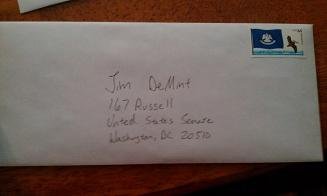 Jim DeMint
167 Russell
United States Senate
Washington, DC 20510